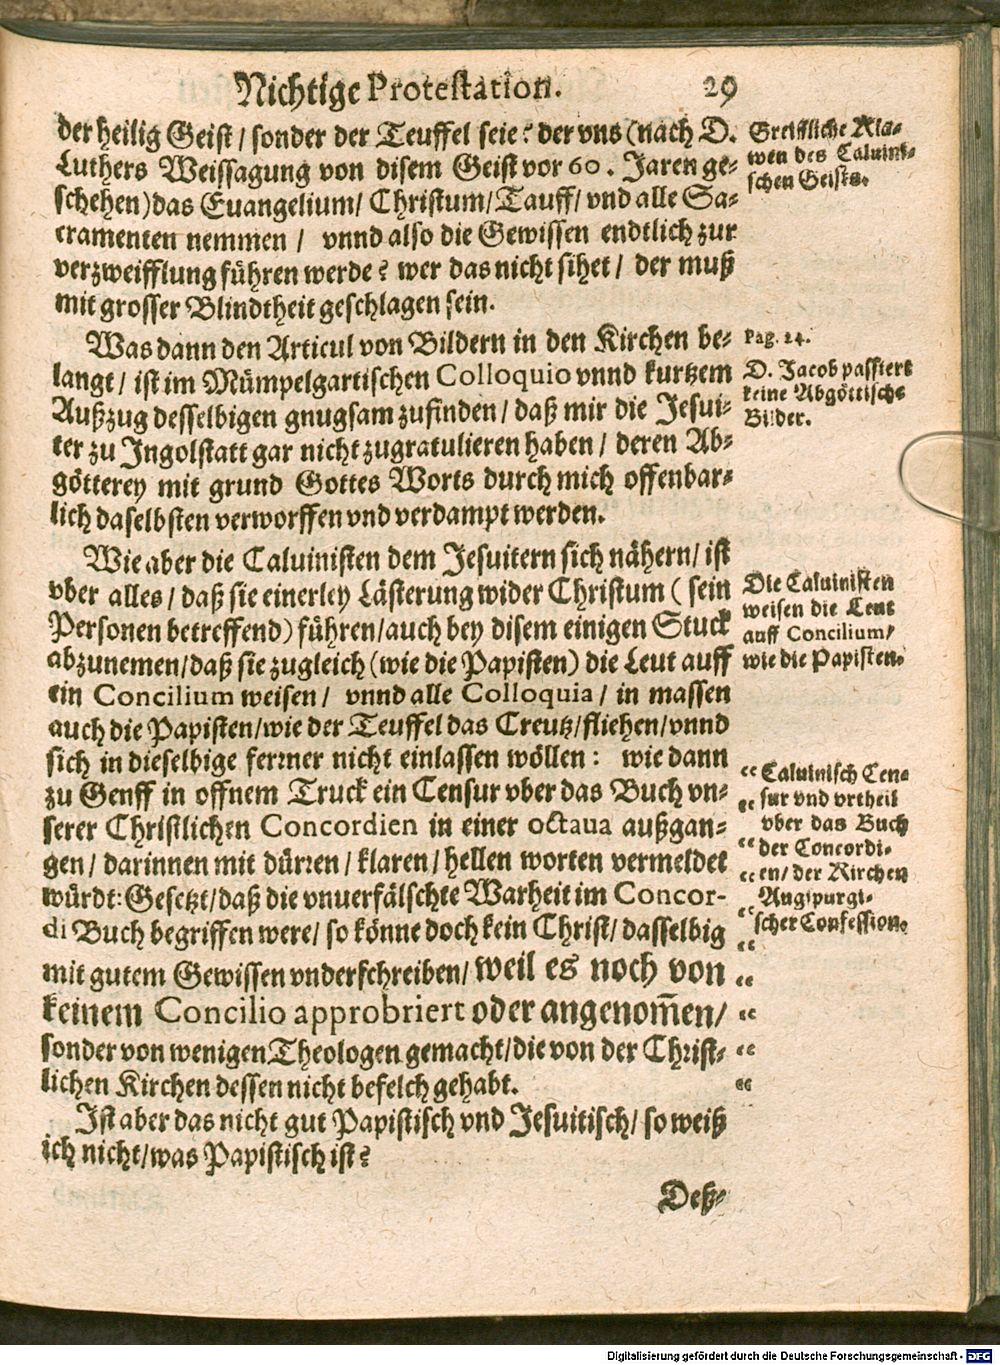 Nichtige Protestation. 29
der heilig Geist / sonder der Teuffel seie? der vns (nach D.
Luthers Weissagung von disem Geist vor 60. Jaren ge-
schehen) das Euangelium / Christum / Tauff / vnd alle Sa-
cramenten nemmen / vnnd also die Gewissen endtlich zur
verzweifflung führen werde? wer das nicht sihet / der muß
mit grosser Blindtheit geschlagen sein.
Greiffliche Kla-
wen des Caluini-
schen Geists.
Was dann den Articul von Bildern in den Kirchen be-
langt / ist im Mümpelgartischen Colloquio vnnd kurtzem
Außzug desselbigen gnugsam zufinden / daß mir die Jesui-
ter zu Ingolstatt gar nicht zugratulieren haben / deren Ab-
götterey mit grund Gottes Worts durch mich offenbar-
lich daselbsten verworffen vnd verdampt werden.
Pag. 24.
D. Jacob passiert
keine Abgöttische
Bilder.
Wie aber die Caluinisten dem Jesuitern sich nähern / ist
vber alles / daß sie einerley Lästerung wider Christum (sein
Personen betreffend) führen / auch bey disem einigen Stuck
abzunemen / daß sie zugleich (wie die Papisten) die Leut auff
ein Concilium weisen / vnnd alle Colloquia / in massen
auch die Papisten / wie der Teuffel das Creutz / fliehen / vnnd
sich in dieselbige ferrner nicht einlassen wöllen: wie dann
zu Genff in offnem Truck ein Censur vber das Buch vn-
serer Christlichen Concordien in einer octaua außgan-
gen / darinnen mit dürren / klaren / hellen worten vermeldet
würdt: Gesetzt / daß die vnuerfälschte Warheit im Concor-
di Buch begriffen were / so könne doch kein Christ / dasselbig
mit gutem Gewissen vnderschreiben / weil es noch von
keinem Concilio approbriert oder angenom̃en /
sonder von wenigen Theologen gemacht / die von der Christ-
lichen Kirchen dessen nicht befelch gehabt.
Die Caluinisten
weisen die Leut
auff Concilium /
wie die Papisten.
“ Caluinisch Cen-
“ sur vnd vrtheil
vber das Buch
“ der Concordi-
“ en / der Kirchen
Augspurgi-
“ scher Confession.
“
“
“
“
“
Ist aber das nicht gut Papistisch vnd Jesuitisch / so weiß
ich nicht / was Papistisch ist?
Deß-
Digitalisierung gefördert durch die Deutsche Forschungsgemeinschaft - DFG